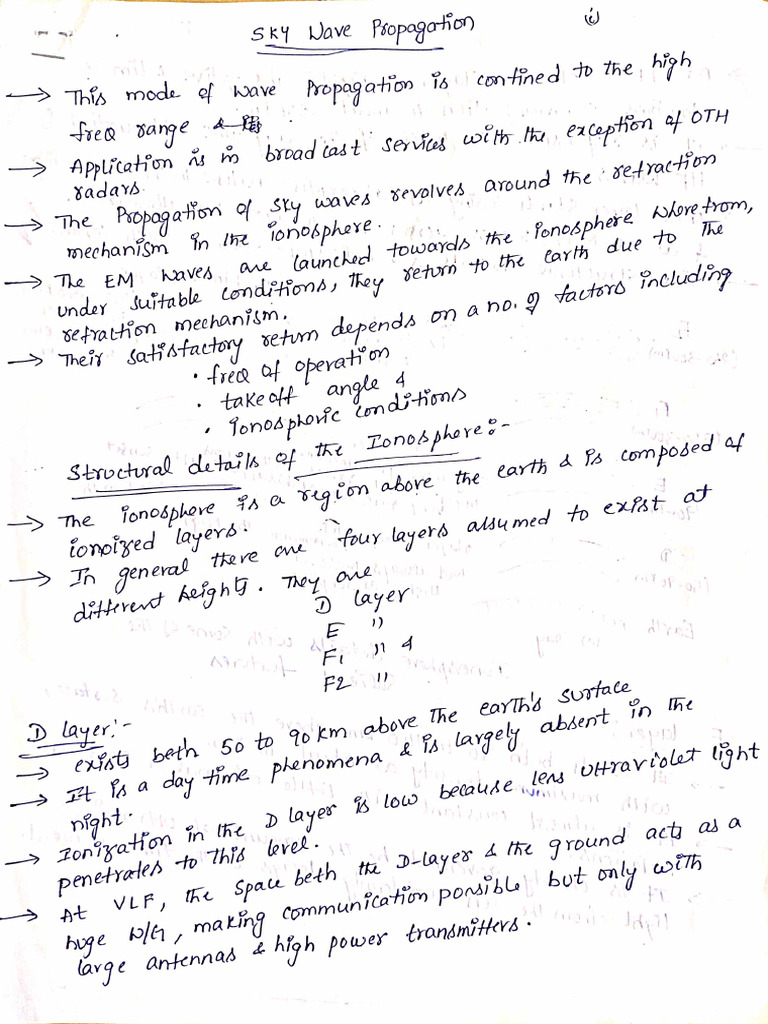 Sky Wave Propagation
→ This mode of wave Propagation is confined to the high
freq range
→ Application is in broadcast services with the exception of OTH
radars
→ The Propagation of sky waves revolves around the refraction
mechanism in the ionosphere.
→ The EM waves are launched towards the ionosphere where from,
under suitable conditions, they return to the earth due to the
refraction mechanism.
→ Their satisfactory return depends on a no. of factors including
• freq of operation
• takeoff angle &
• ionospheric conditions
Structural details of the Ionosphere:-
→ The ionosphere is a region above the earth & is composed of
ionized layers.
→ In general there are four layers assumed to exist at
different heights. They are
D layer
E "
F1 " &
F2 "
D layer:-
→ exists beth 50 to 90 km above the earth's surface
→ It is a day time phenomena & is largely absent in the
night.
→ Ionization in the D layer is low because less ultraviolet light
penetrates to this level.
→ At VLF, the space beth the D-layer & the ground acts as a
huge W/G, making communication possible but only with
large antennas & high power transmitters.